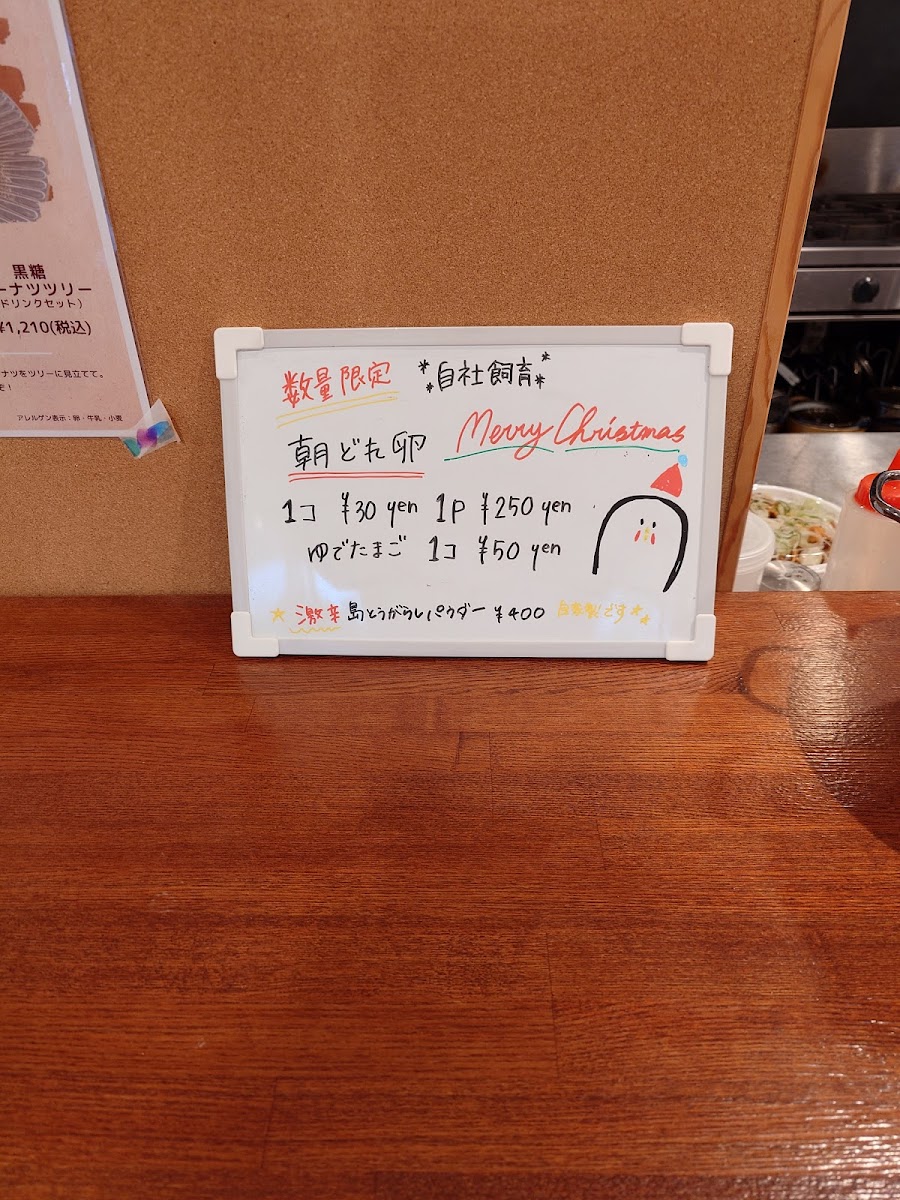 黒糖
ーナツツリー
ドリンクセット）
¥1,210(税込)
ナツをツリーに見立てて。
アレルゲン表示：卵・牛乳・小麦
数量限定 *自社飼育*
朝どれ卵 Merry Christmas
1コ ¥30 yen 1P ¥250 yen
ゆでたまご 1コ ¥50 yen
激辛 島とうがらしパウダー ¥400 自家製です